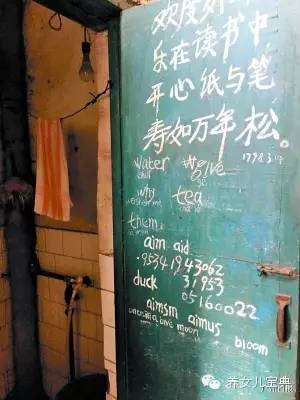 欢度好
乐在读书中
开心纸与笔
寿如万年松。
water
why tea
them
aim aid
.95341943062
duck 31953
05160022
aimsm aimus
moon bloom
养女儿宝典